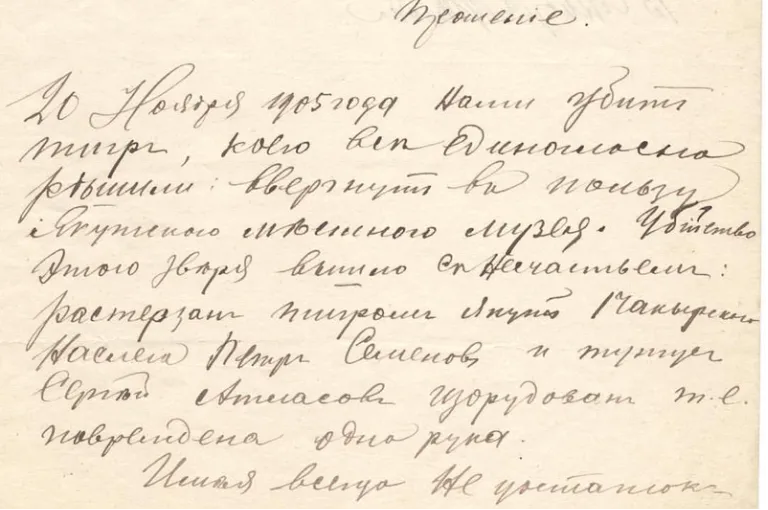 Прошение.
20 Ноября 1905 года Нами убитъ
тигръ, кого всѣ единогласно
рѣшили: ввергнутъ въ пользу
Якутского мѣстного музея. Убійство
этого звѣря вышло съ несчастьемъ:
растерзанъ тигромъ якутъ 1 Чакырского
Наслега Петръ Семеновъ и тунгус
Сергѣй Атласовъ изуродованъ т.е.
повреждена одна рука.
Имая всего Не достаток